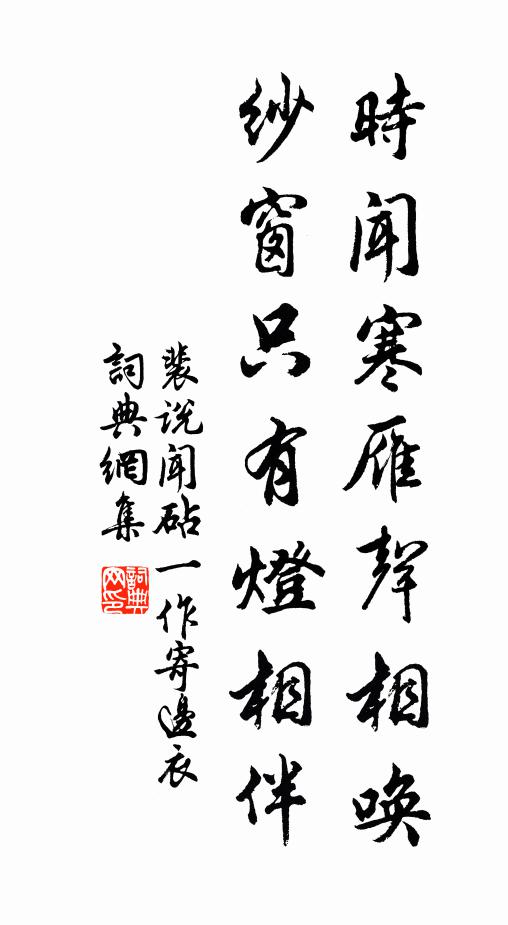 時聞寒雁聲相喚
紗窗只有燈相伴
裴説聞砧一作寄邊衣
詞典網集
詞典网印